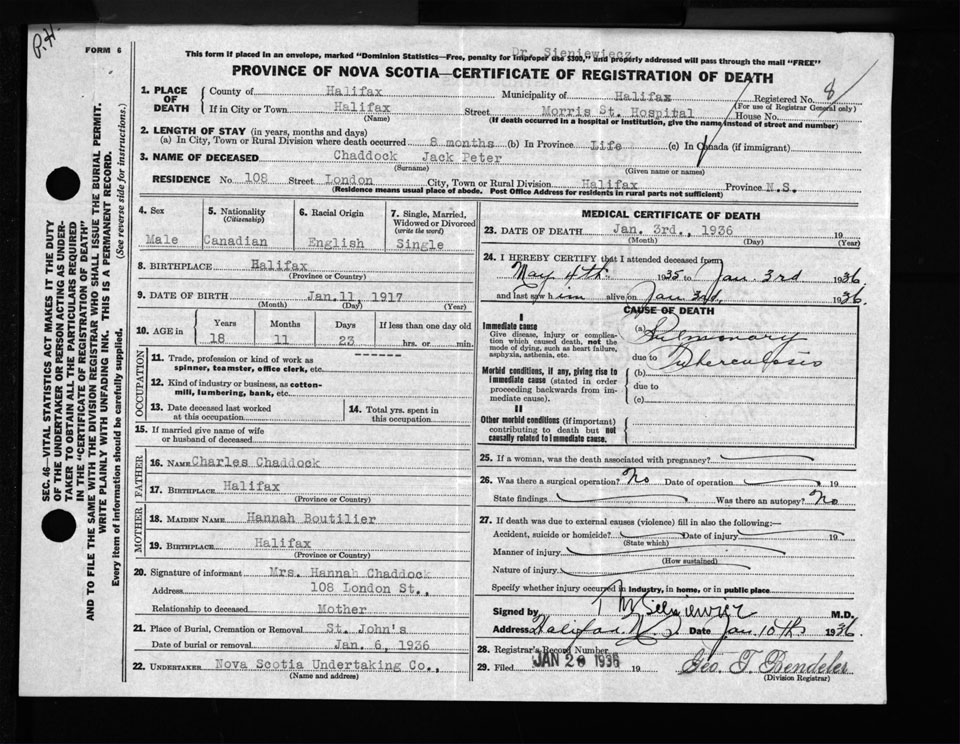 P.H.
FORM 6
Dr. Sieniewiecz
This form if placed in an envelope, marked "Dominion Statistics—Free, penalty for improper use $300," and properly addressed will pass through the mail "FREE"
PROVINCE OF NOVA SCOTIA—CERTIFICATE OF REGISTRATION OF DEATH
SEC. 46—VITAL STATISTICS ACT MAKES IT THE DUTY
OF THE UNDERTAKER OR PERSON ACTING AS UNDER-
TAKER TO OBTAIN ALL THE PARTICULARS REQUIRED
IN THE "CERTIFICATE OF REGISTRATION OF DEATH"
AND TO FILE THE SAME WITH THE DIVISION REGISTRAR WHO SHALL ISSUE THE BURIAL PERMIT.
WRITE PLAINLY WITH UNFADING INK. THIS IS A PERMANENT RECORD.
Every item of information should be carefully supplied. (See reverse side for instructions.)
1. PLACE OF DEATH
County of Halifax Municipality of Halifax Registered No. 8
(For use of Registrar General only)
If in City or Town Halifax Street Morris St. Hospital House No.
(Name) (If death occurred in a hospital or institution, give the name instead of street and number)
2. LENGTH OF STAY (in years, months and days)
(a) In City, Town or Rural Division where death occurred 8 months (b) In Province Life (c) In Canada (if immigrant)
3. NAME OF DECEASED Chaddock Jack Peter
(Surname) (Given name or names)
RESIDENCE No 108 Street London City, Town or Rural Division Halifax Province N.S.
(Residence means usual place of abode. Post Office Address for residents in rural parts not sufficient)
4. Sex 5. Nationality (Citizenship) 6. Racial Origin 7. Single, Married, Widowed or Divorced (write the word)
Male Canadian English Single
8. BIRTHPLACE Halifax
(Province or Country)
9. DATE OF BIRTH Jan. 11, 1917
(Month) (Day) (Year)
10. AGE in Years Months Days If less than one day old
18 11 23 hrs. or min.
OCCUPATION
11. Trade, profession or kind of work as
spinner, teamster, office clerk, etc. -------
12. Kind of industry or business, as cotton-
mill, lumbering, bank, etc.
13. Date deceased last worked
at this occupation
14. Total yrs. spent in
this occupation
15. If married give name of wife
or husband of deceased
FATHER
16. NAME Charles Chaddock
17. BIRTHPLACE Halifax
(Province or Country)
MOTHER
18. MAIDEN NAME Hannah Boutilier
19. BIRTHPLACE Halifax
(Province or Country)
20. Signature of informant Mrs. Hannah Chaddock
Address 108 London St.,
Relationship to deceased Mother
21. Place of Burial, Cremation or Removal St. John's
Date of burial or removal Jan. 6, 1936
22. UNDERTAKER Nova Scotia Undertaking Co.,
(Name and address)
MEDICAL CERTIFICATE OF DEATH
23. DATE OF DEATH Jan. 3rd., 1936 19
(Month) (Day) (Year)
24. I HEREBY CERTIFY that I attended deceased from
May 4th 1935 to Jan. 3rd 1936
and last saw him alive on Jan 3rd 1936.
CAUSE OF DEATH
I
Immediate cause
Give disease, injury or complica-
tion which caused death, not the
mode of dying, such as heart failure,
asphyxia, asthenia, etc.
(a) Pulmonary
due to Tuberculosis
Morbid conditions, if any, giving rise to
immediate cause (stated in order
proceeding backwards from im-
mediate cause).
(b)
due to
(c)
II
Other morbid conditions (if important)
contributing to death but not
causally related to immediate cause.
25. If a woman, was the death associated with pregnancy?
26. Was there a surgical operation? No Date of operation 19
State findings Was there an autopsy? No
27. If death was due to external causes (violence) fill in also the following:—
Accident, suicide or homicide? Date of injury 19
(State which)
Manner of injury
(How sustained)
Nature of injury
Specify whether injury occurred in industry, in home, or in public place
Signed by T M Sieniewicz M.D.
Address Halifax N.S. Date Jan. 10th 1936.
28. Registrar's Record Number
29. Filed JAN 20 1936 19 Geo. T.
(Division Registrar)